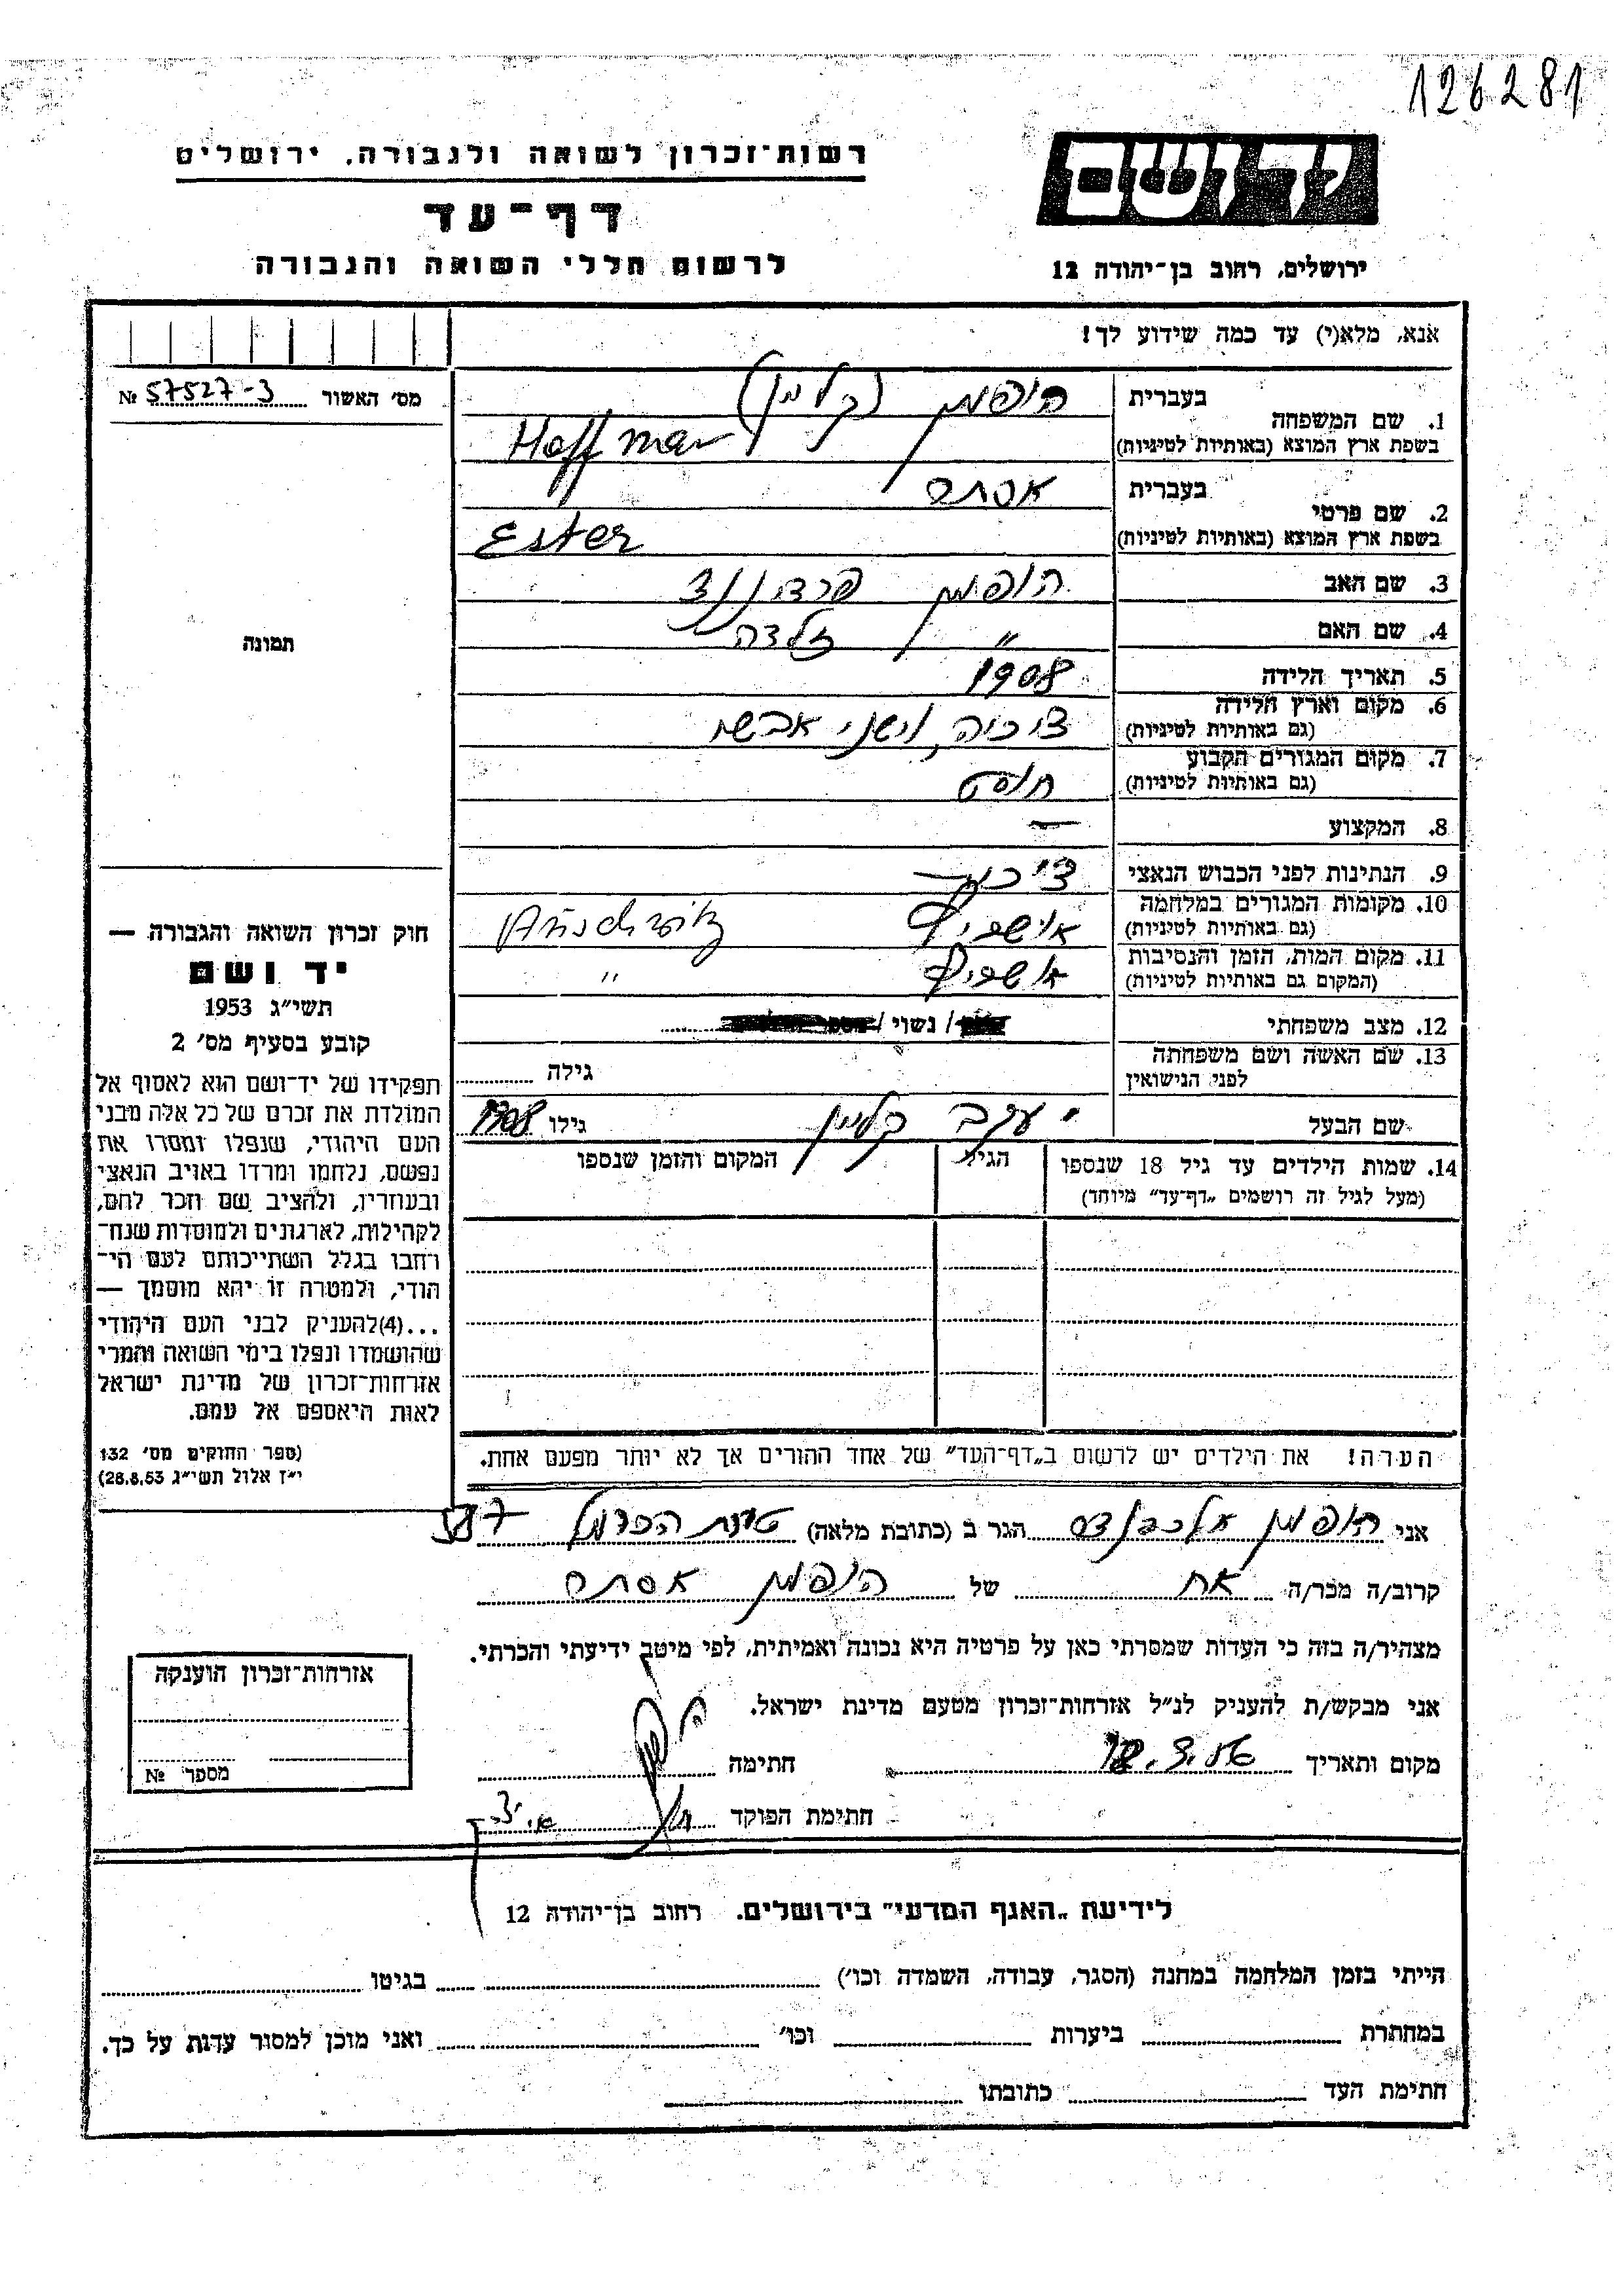 126281
יד ושם
ירושלים, רחוב בן־יהודה 12
רשות־זכרון לשואה ולגבורה, ירושלים
דף־עד
לרשום חללי השואה והגבורה
אנא, מלא(י) עד כמה שידוע לך!
מס׳ האשור № 57527-3
תמונה
1. שם המשפחה בעברית הופמן (קליין)
בשפת ארץ המוצא (באותיות לטיניות) Hoffman
2. שם פרטי בעברית אסתר
בשפת ארץ המוצא (באותיות לטיניות) Ester
3. שם האב הופמן פרדיננד
4. שם האם " זלדה
5. תאריך הלידה 1908
6. מקום וארץ הלידה
(גם באותיות לטיניות) צ׳כיה,
7. מקום המגורים הקבוע
(גם באותיות לטיניות) חוסט
8. המקצוע —
9. הנתינות לפני הכבוש הנאצי
10. מקומות המגורים במלחמה
(גם באותיות לטיניות) אושביץ Auschwitz
11. מקום המות, הזמן והנסיבות
(המקום גם באותיות לטיניות) אושביץ "
12. מצב משפחתי / נשוי /
13. שם האשה ושם משפחתה
לפני הנישואין גילה
שם הבעל יעקב קליין גילו 1908
14. שמות הילדים עד גיל 18 שנספו הגיל המקום והזמן שנספו
(מעל לגיל זה רושמים „דף־עד” מיוחד)
הערה! את הילדים יש לרשום ב„דף־העד” של אחד ההורים אך לא יותר מפעם אחת.
חוק זכרון השואה והגבורה —
יד ושם
תשי״ג 1953
קובע בסעיף מס׳ 2
תפקידו של יד־ושם הוא לאסוף אל
המולדת את זכרם של כל אלה מבני
העם היהודי, שנפלו ומסרו את
נפשם, נלחמו ומרדו באויב הנאצי
ובעוזריו, ולהציב שם וזכר להם,
לקהילות, לארגונים ולמוסדות שנח־
רחבו בגלל השתייכותם לעם הי־
הודי, ולמטרה זו יהא מוסמך —
...(4)להעניק לבני העם היהודי
שהושמדו ונפלו בימי השואה והמרי
אזרחות־זכרון של מדינת ישראל
לאות היאספם אל עמם.
(ספר החוקים מס׳ 132
י״ז אלול תשי״ג 28.8.53)
אני הופמן אלכסנדר הגר ב (כתובת מלאה) טירת הכרמל 587
קרוב/ה מכר/ה אח של הופמן אסתר
מצהיר/ה בזה כי העדות שמסרתי כאן על פרטיה היא נכונה ואמיתית, לפי מיטב ידיעתי והכרתי.
אני מבקש/ת להעניק לנ״ל אזרחות־זכרון מטעם מדינת ישראל.
מקום ותאריך חתימה
חתימת הפוקד
אזרחות־זכרון הוענקה
מספר №
לידיעת „האגף המדעי” בירושלים. רחוב בן־יהודה 12
הייתי בזמן המלחמה במחנה (הסגר, עבודה, השמדה וכו׳) בגיטו
במחתרת ביערות וכו׳ ואני מוכן למסור עדות על כך.
חתימת העד כתובתו